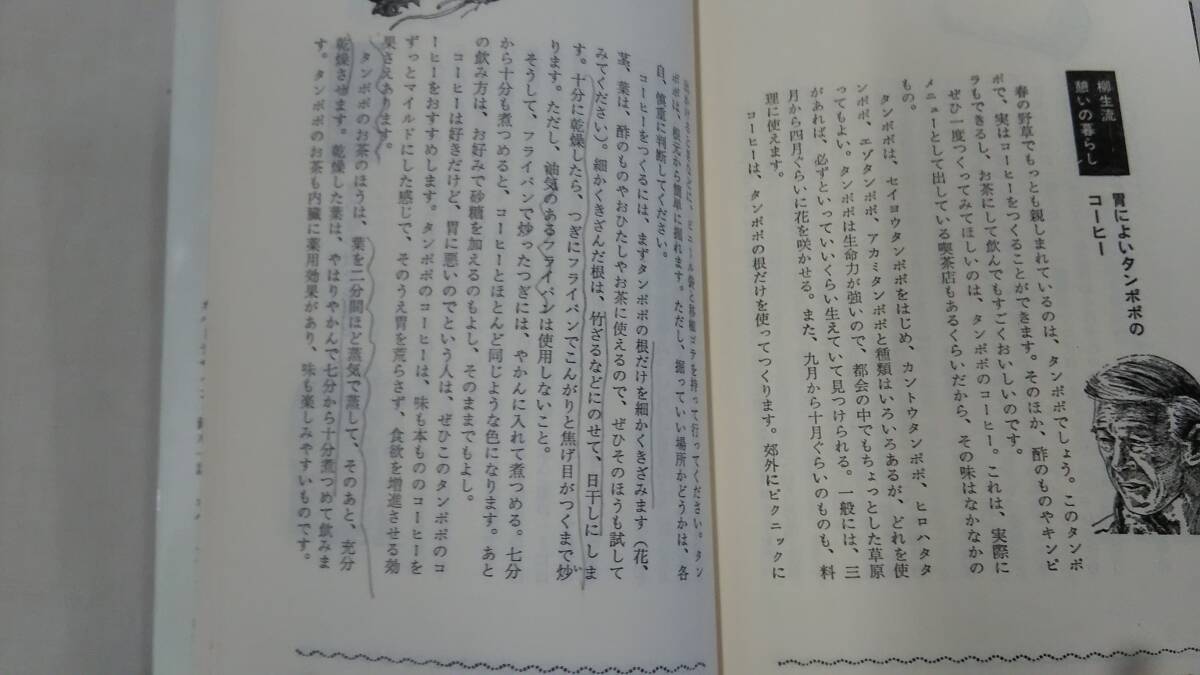 柳生流
憩いの暮らし
胃によいタンポポの
コーヒー
春の野草でもっとも親しまれているのは、タンポポでしょう。このタンポ
ポで、実はコーヒーをつくることができます。そのほか、酢のものやキンピ
ラもできるし、お茶にして飲んでもすごくおいしいのです。
ぜひ一度つくってみてほしいのは、タンポポのコーヒー。これは、実際に
メニューとして出している喫茶店もあるくらいだから、その味はなかなかの
もの。
タンポポは、セイヨウタンポポをはじめ、カントウタンポポ、ヒロハタタ
ンポポ、エゾタンポポ、アカミタンポポと種類はいろいろあるが、どれを使
ってもよい。タンポポは生命力が強いので、都会の中でもちょっとした草原
があれば、必ずといっていいくらい生えていて見つけられる。一般には、三
月から四月ぐらいに花を咲かせる。また、九月から十月ぐらいのものも、料
理に使えます。
コーヒーは、タンポポの根だけを使ってつくります。郊外にピクニックに
ビニール袋と移植ゴテを持って行ってください。タン
ポポは、根元から簡単に掘れます。ただし、掘っていい場所かどうかは、各
自、慎重に判断してください。
コーヒーをつくるには、まずタンポポの根だけを細かくきざみます（花、
茎、葉は、酢のものやおひたしやお茶に使えるので、ぜひそのほうも試して
みてください）。細かくきざんだ根は、竹ざるなどにのせて、日干しにしま
す。十分に乾燥したら、つぎにフライパンでこんがりと焦げ目がつくまで炒
ります。ただし、油気のあるフライパンは使用しないこと。
そうして、フライパンで炒ったつぎには、やかんに入れて煮つめる。七分
から十分も煮つめると、コーヒーとほとんど同じような色になります。あと
の飲み方は、お好みで砂糖を加えるのもよし、そのままでもよし。
コーヒーは好きだけど、胃に悪いのでという人は、ぜひこのタンポポのコ
ーヒーをおすすめします。タンポポのコーヒーは、味も本もののコーヒーを
ずっとマイルドにした感じで、そのうえ胃を荒らさず、食欲を増進させる効
果さえあります。
タンポポのお茶のほうは、葉を二分間ほど蒸気で蒸して、そのあと、充分
乾燥させます。乾燥した葉は、やはりやかんで七分から十分煮つめて飲みま
す。タンポポのお茶も内臓に薬用効果があり、味も楽しみやすいものです。